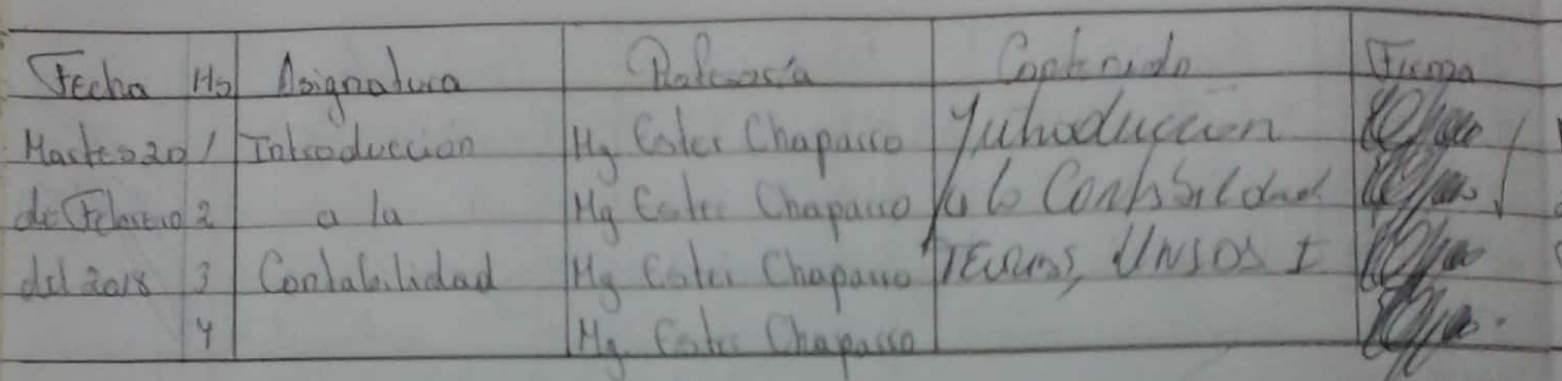 Fecha Hs Asignatura Profesor/a Contenido Firma
Martes 20 1 Introduccion Mg Ester Chaparro Introducción
de Febrero 2 a la Mg Ester Chaparro a la Contabilidad
del 2018 3 Contabilidad Mg Ester Chaparro I
4 Mg Ester Chaparro